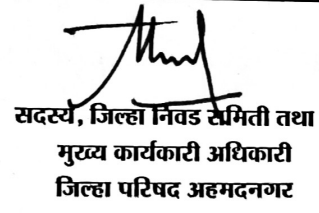 सदस्य, जिल्हा निवड समिती तथा
मुख्य कार्यकारी अधिकारी
जिल्हा परिषद अहमदनगर